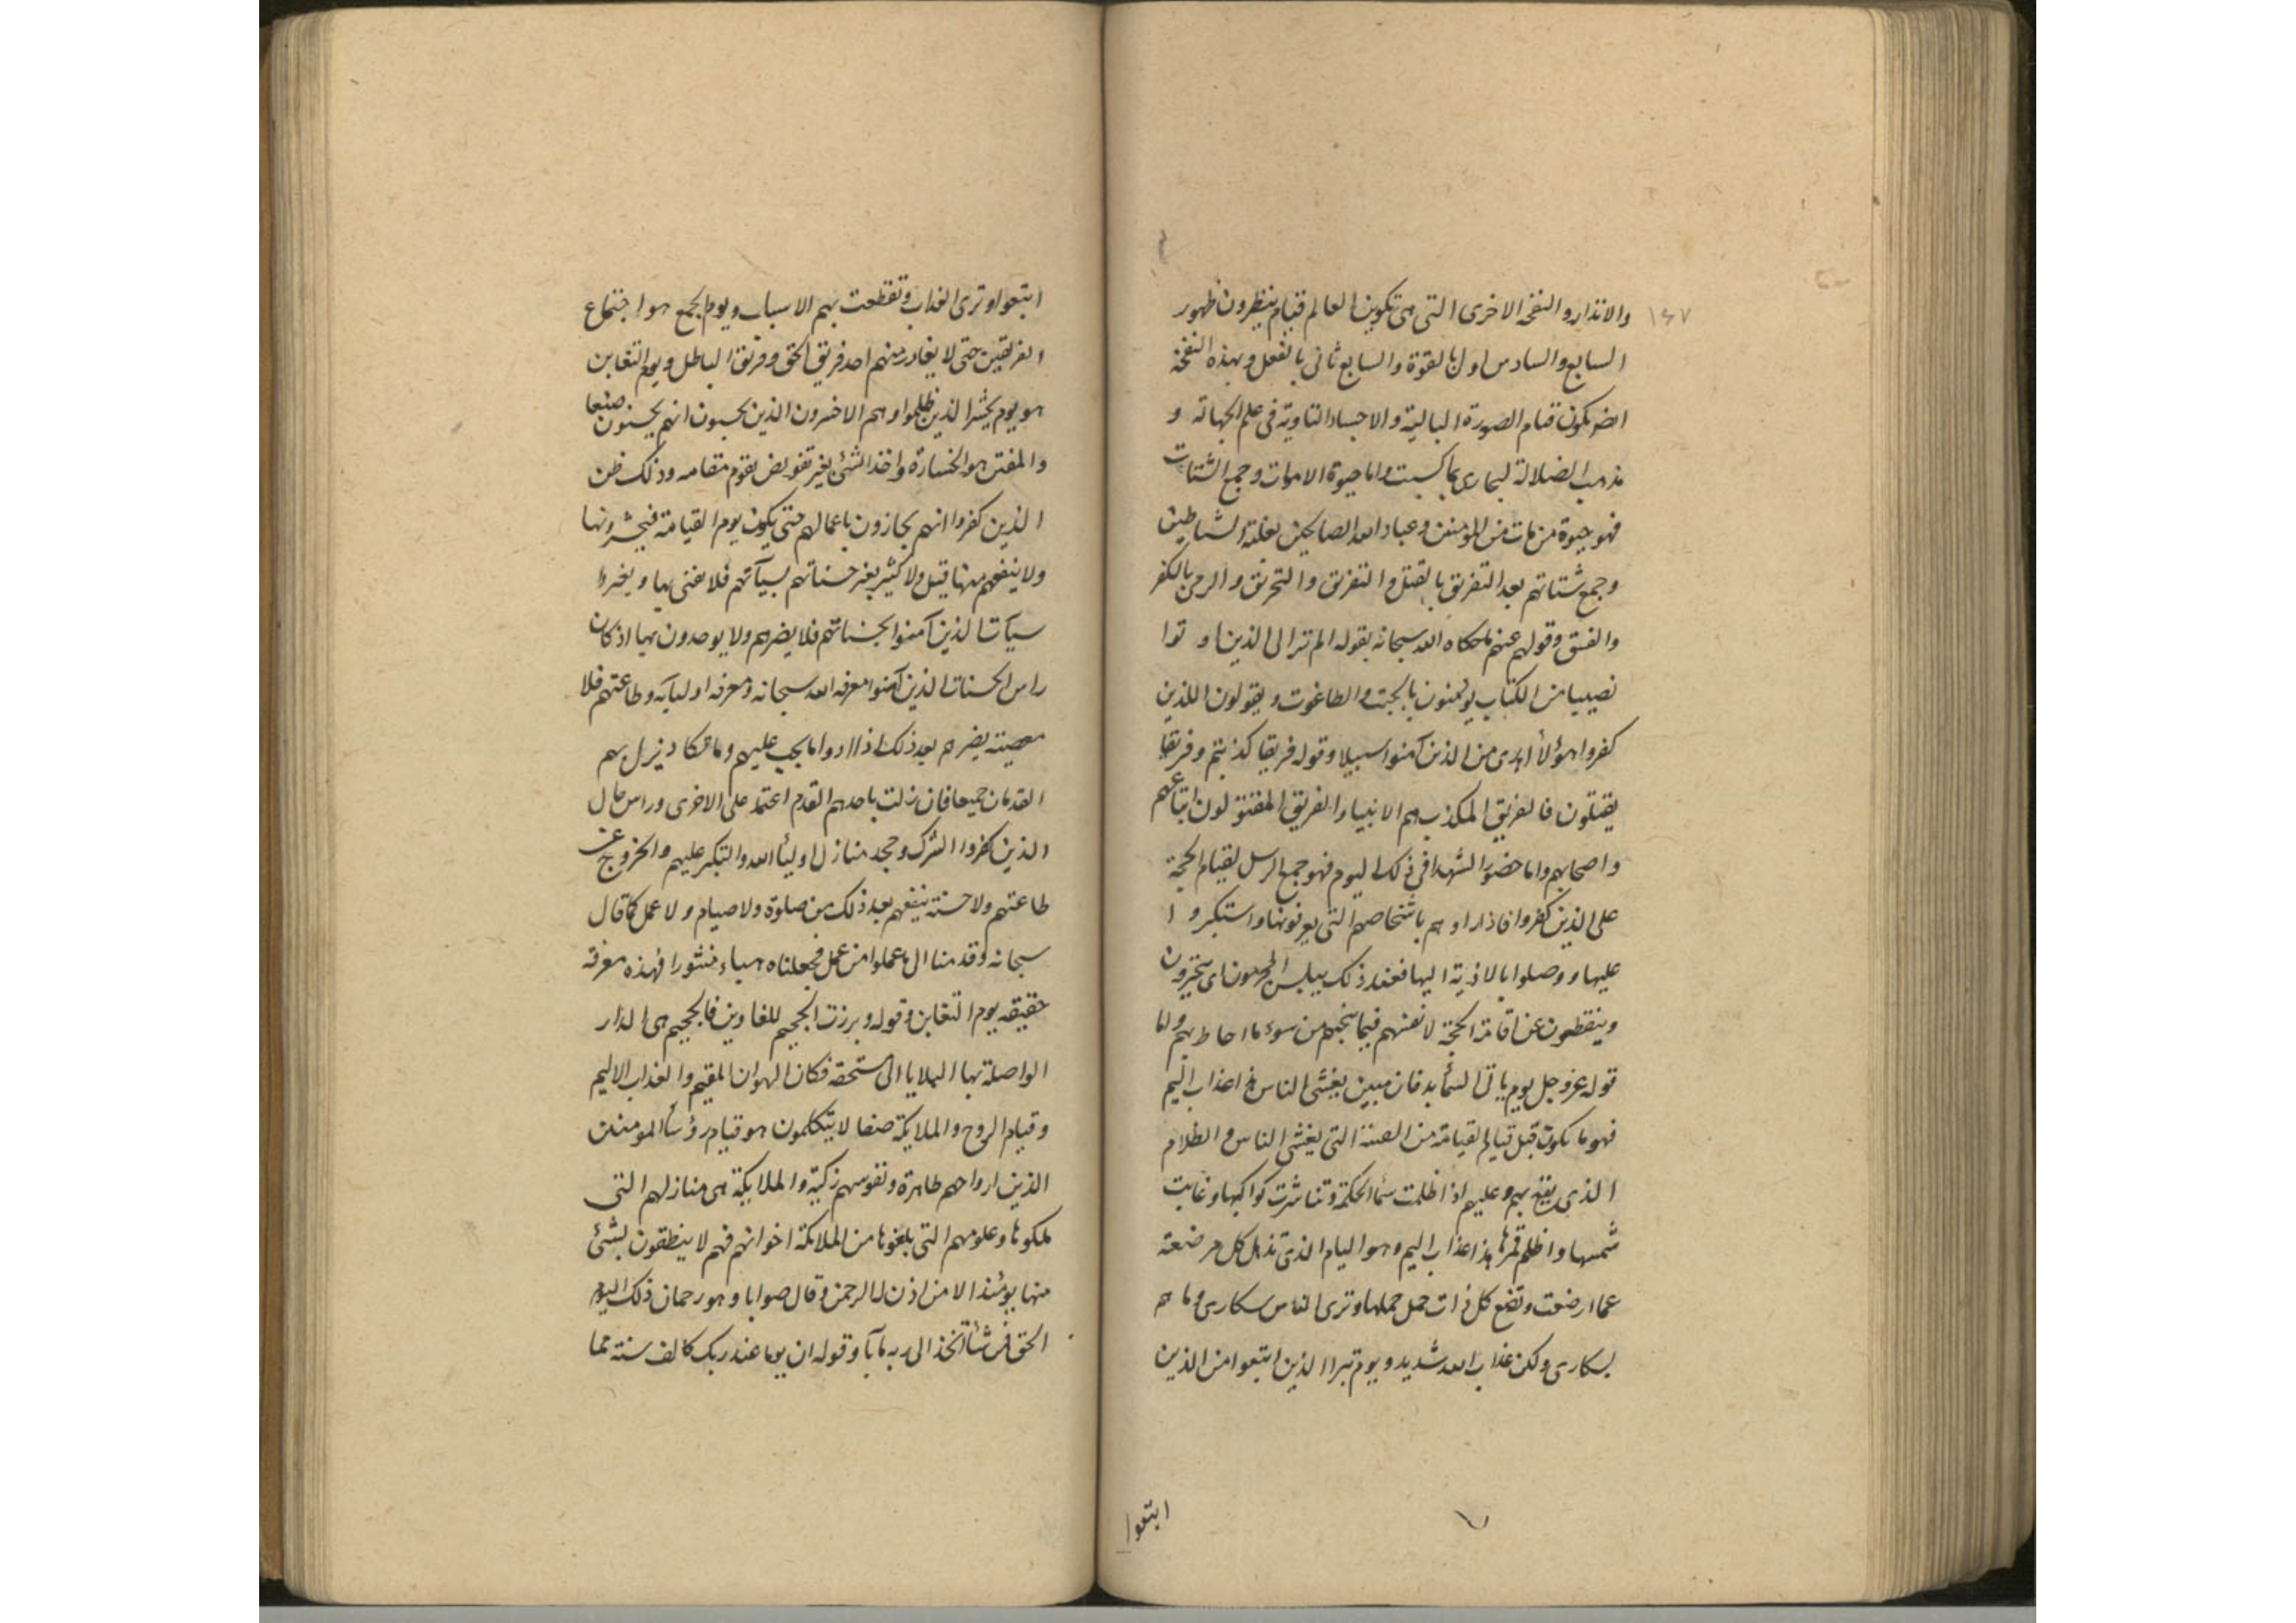 ١٤٧
والانذار والنفخة الاخرى التى هى تكوين العالم قيام ينظرون ظهور
السابع والسادس اول بالقوة والسابع ثانى بالفعل وبهذه النفخة
يكون قيام الصورة البالية والاجساد الثاوية فى علم الجهالة و
مذهب الضلالة بما كسبت واما حيوة الاموات وجمع الشتات
فهو حيوة من مات من المؤمنين وعباد الله الصالحين بغلبة الشياطين
وجمع شتاتهم بعد التفريق بالقتل والتفريق والتحريق والرمى بالكفر
والفسق وقولهم عنهم ما حكاه الله سبحانه بقوله الم تر الى الذين اوتوا
نصيبا من الكتاب يؤمنون بالجبت والطاغوت ويقولون اللذين
كفروا هؤلاء اهدى من الذين آمنوا سبيلا وقوله فريقا كذبتم وفريقا
يقتلون فالفريق المكذب هم الانبياء والفريق المقتولون اتباعهم
واصحابهم واما حضور الشهداء فى ذلك اليوم فهو جمع الرسل لقيام الحجة
على الذين كفروا فاذا راوهم باشخاصهم التى يعرفونها واستكبروا
عليها ووصلوا بالاذية اليها فعند ذلك يبلس المجرمون اى يتحيرون
وينقطعون عن اقامة الحجة لانفسهم فيما ينجيهم من سوء ما احاط بهم واما
قوله عز وجل يوم ياتى السماء بدخان مبين يغشى الناس هذا عذاب اليم
فهو ما يكون قبل قيام القيامة من التى يغشى الناس والظلام
الذى يقع بهم وعليهم اذا اظلمت سماء الحكمة وتناثرت كواكبها وغابت
شمسها واظلم قمرها هذا عذاب اليم وهو اليام الذى تذهل كل مرضعة
عما ارضعت وتضع كل ذات حمل حملها وترى الناس سكارى وما هم
بسكارى ولكن عذاب الله شديد ويوم تبرا الذين اتبعوا من الذين
اتبعوا
اتبعوا وترى العذاب وتقطعت بهم الاسباب ويوم الجمع هو اجتماع
الفريقين حتى لا يغادر منهم احد فريق الحق وفريق الباطل ويوم التغابن
هو يوم يحشر الذين ظلموا وهم الاخسرون الذين يحسبون انهم يحسنون صنعا
هو الخسارة واخذ الشئ بغير تعويض يقوم مقامه وذلك ظن
الذين كفروا انهم يجازون باعمالهم حتى يكون يوم القيامة
ولا ينفعهم منها قليل ولا كثير حسناتهم بسيآتهم فلا
سيآت الذين آمنوا بحسناتهم فلا يضرهم ولا بها اذ كان
راس الحسنات الذين آمنوا معرفة الله سبحانه ومعرفة اوليائه وطاعتهم فلا
معصية يضرهم بعد ذلك اذا ادوا ما يجب عليهم وما تكاد يزل بهم
القدمان جميعا فان زلت باحدهم القدم اعتمد على الاخرى وراس مال
الذين كفروا الشرك وجحد منازل اولياء الله والتكبر عليهم والخروج عن
طاعتهم ولا حسنة ينفعهم بعد ذلك من صلوة ولا صيام ولا عمل كما قال
سبحانه وقدمنا الى ما عملوا من عمل فجعلناه هباء منثورا فهذه معرفة
حقيقه يوم التغابن وقوله وبرزت الجحيم للغاوين فالجحيم هى الدار
الواصلة بها البلايا الى مستحقه فكان الهوان المقيم والعذاب الاليم
وقيام الروح والملايكة صفا لا يتكلمون هو قيام رؤساء المومنين
الذين ارواحهم طاهرة ونفوسهم زكية والملايكة هى منازلهم التى
ملكوها وعلومهم التى بلغوها من الملائكة اخوانهم فهم لا ينطقون بشئ
منها يومئذ الا من اذن له الرحمن وقال صوابا وهو رحمان ذلك اليوم
الحق فمن شاء اتخذ الى ربه مآبا وقوله ان يوما عند ربك كالف سنة مما